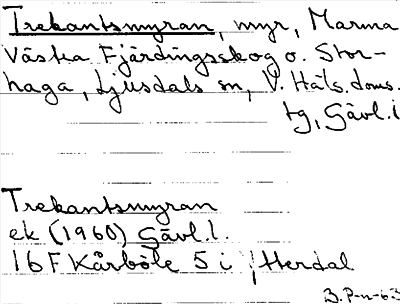 Trekantsmyran, myr, Marma
Västra Fjärdingsskog o. Stor-
haga, Ljusdals sn, V. Häls. doms.
tg, Gävl. l
Trekantsmyran
ek (1960) Gävl. l.
16F Kårböle 5 i Herdal
B. P-n-63